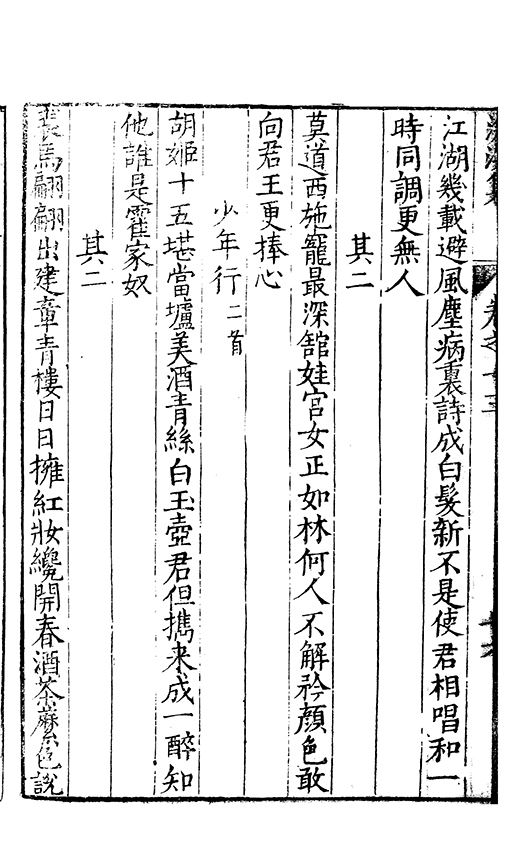 江湖幾載避風塵病裏詩成白髮新不是使君相唱和一
時同調更無人
其二
莫道西施寵最深舘娃宮女正如林何人不解矜顏色敢
向君王更捧心
少年行二首
胡姬十五堪當壚美酒青絲白玉壺君但擕来成一醉知
他誰是霍家奴
其二
裘馬翩翩出建章青樓日日擁紅妝纔開春酒荼蘼色說